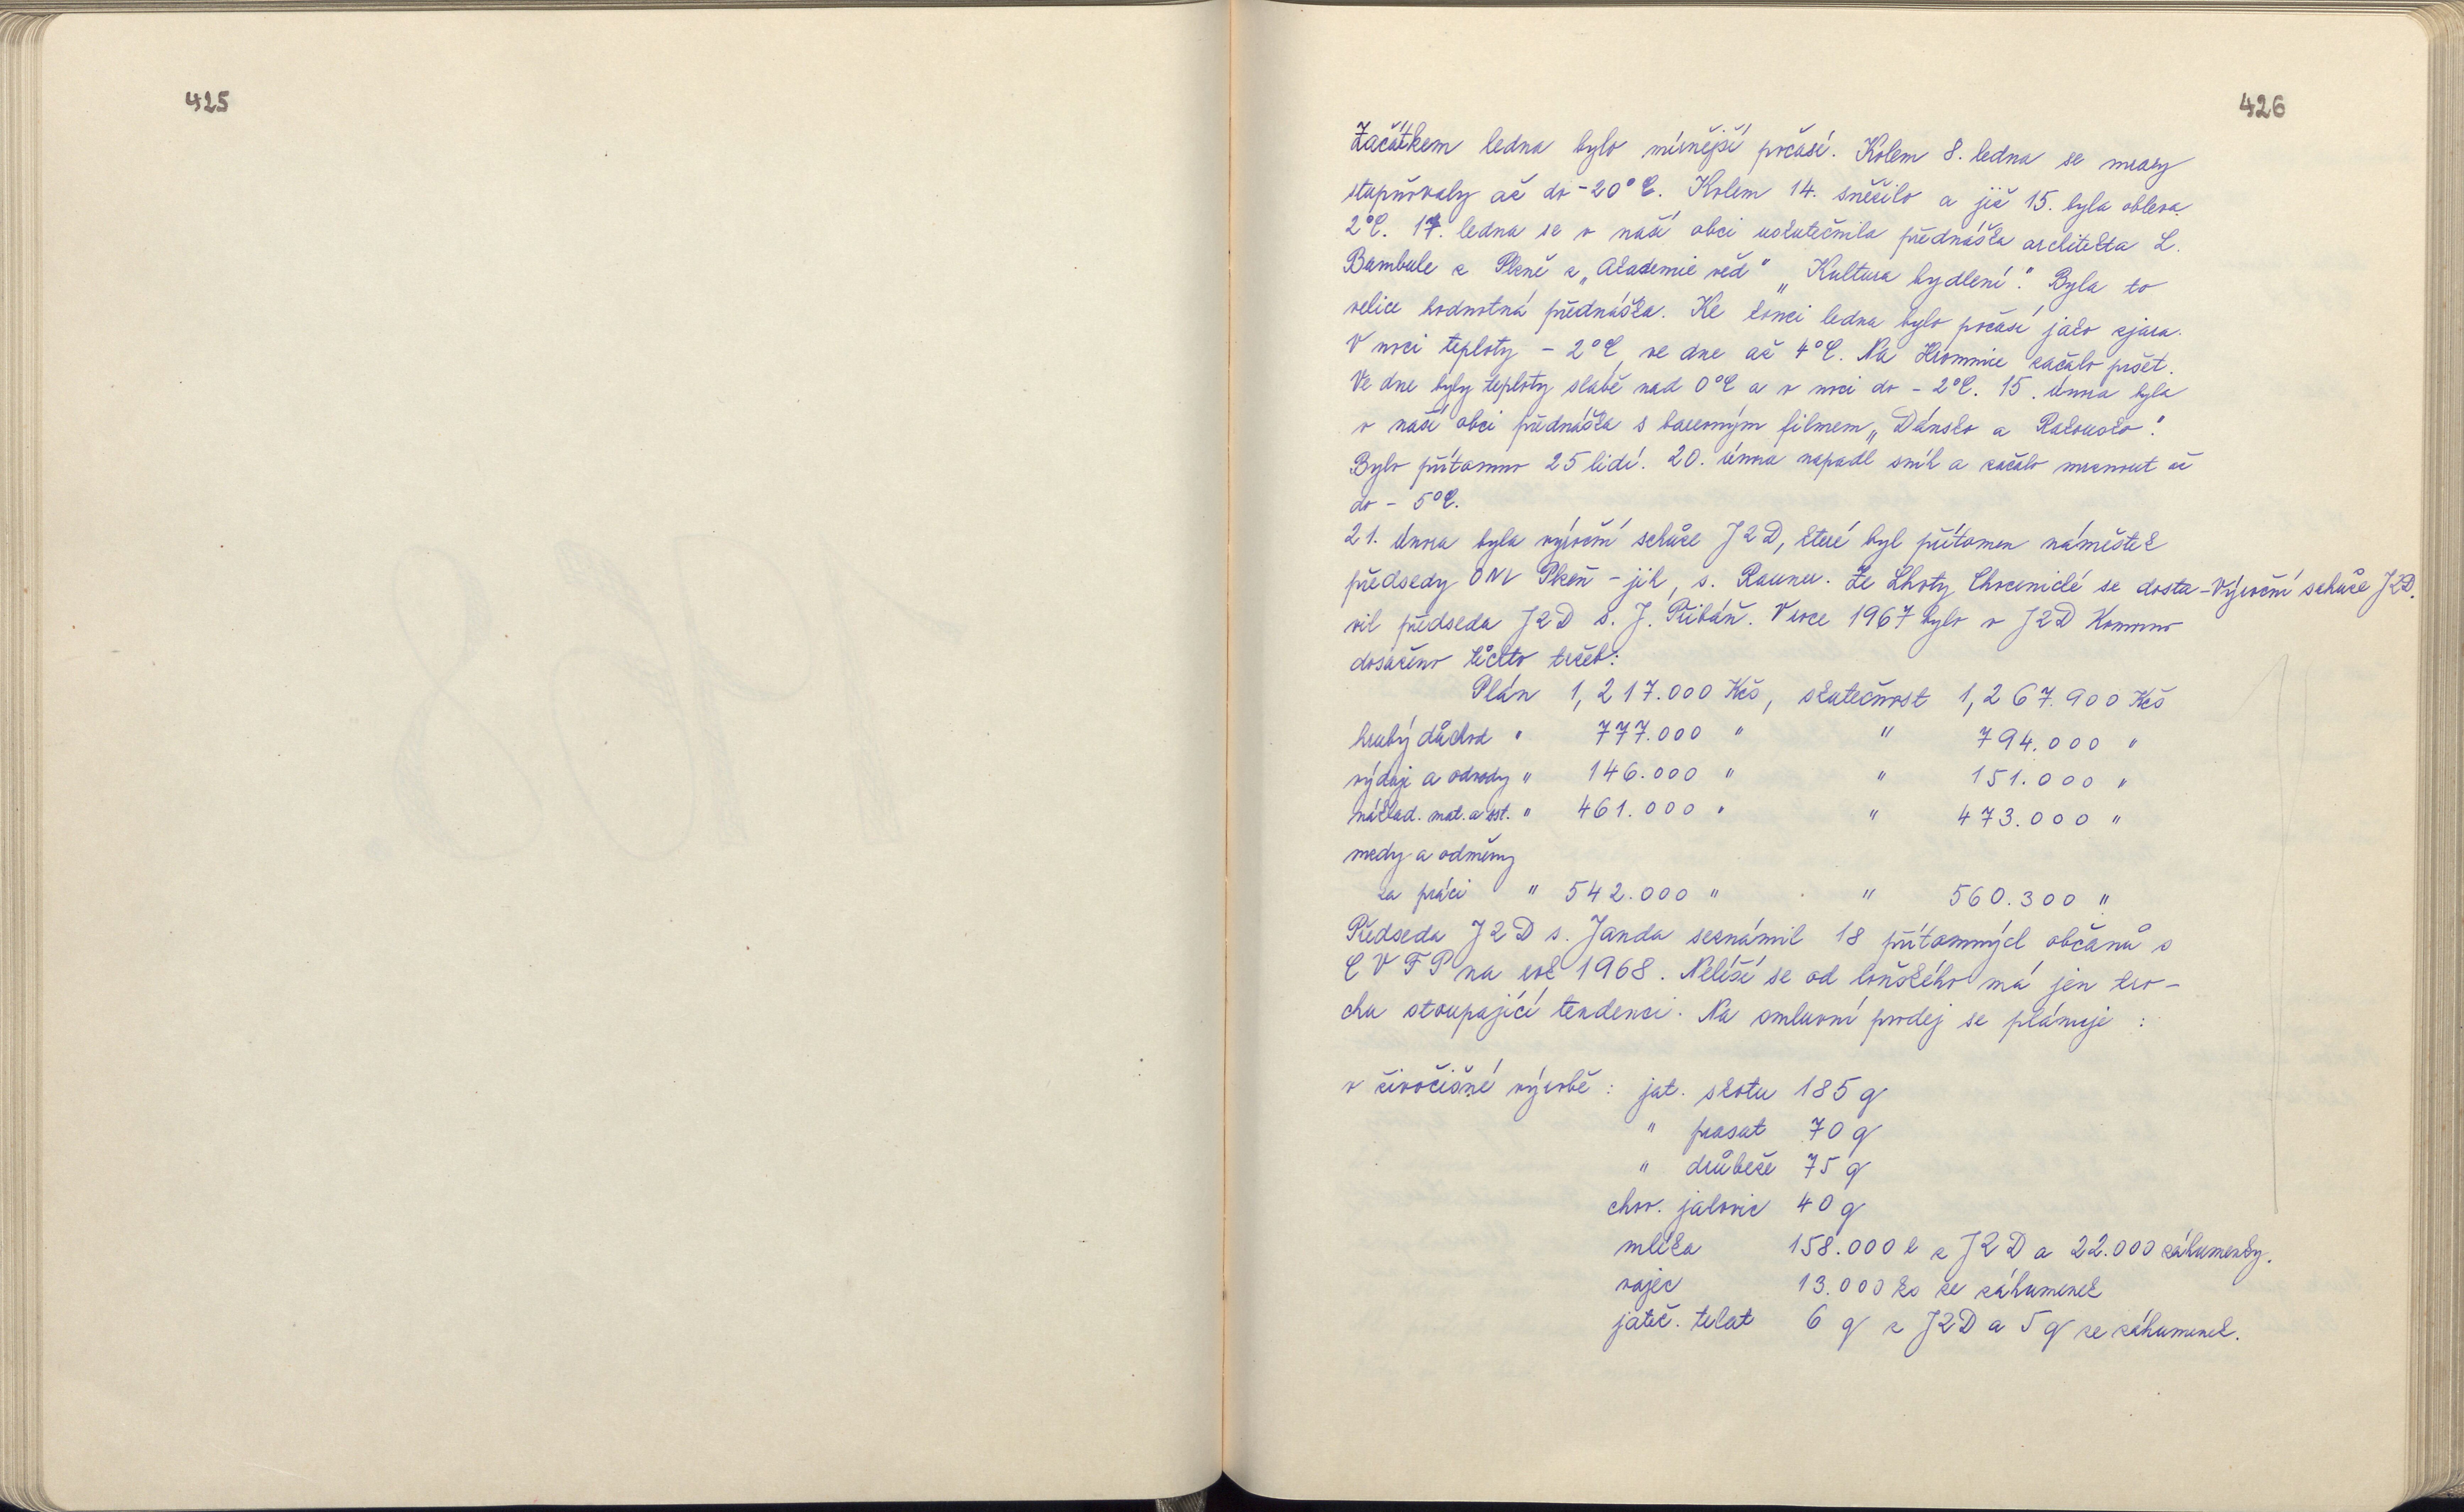 425
426
Začátkem ledna bylo mírnější počasí. Kolem 8. ledna se mrazy
stupňovaly až do -20°C. Kolem 14. sněžilo a již 15. byla obleva
2°C. 17. ledna se v naší obci uskutečnila přednáška architekta L.
Bambule z Plzně z „Akademie věd" „Kultura bydlení". Byla to
velice hodnotná přednáška. Ke konci ledna bylo počasí jako zjara.
V noci teploty - 2°C, ve dne až 4°C. Na Hromnice začalo pršet.
Ve dne byly teploty slabě nad 0°C a v noci do - 2°C. 15. února byla
v naší obci přednáška s barevným filmem „Dánsko a Rakousko".
Bylo přítomno 25 lidí. 20. února napadl sníh a začalo mrznout až
do - 5°C.
21. února byla výroční schůze JZD, které byl přítomen náměstek
předsedy ONV Plzeň - jih, s. Raunu. Ze Lhoty Chocenické se dosta-
Výroční schůze JZD.
vil předseda JZD s. J. Přibáň. V roce 1967 bylo v JZD Komorno
dosaženo těchto tržeb:
Plán 1,217.000 Kčs, skutečnost 1,267.900 Kčs
hrubý důchod " 777.000 " " 794.000 "
výdaje a odvody " 146.000 " " 151.000 "
náklad. mat. a ost. " 461.000 " " 473.000 "
mzdy a odměny
za práci " 542.000 " " 560.300 "
Předseda JZD s. Janda seznámil 18 přítomných občanů s
CVFP na rok 1968. Neliší se od loňského má jen tro-
chu stoupající tendenci. Na smluvní prodej se plánuje :
v živočišné výrobě : jat. skotu 185 q
" prasat 70 q
" drůbeže 75 q
chov. jalovic 40 q
mléka 158.000 l z JZD a 22.000 záhumenky.
vajec 13.000 ks ze záhumenek
jateč. telat 6 q z JZD a 5 q ze záhumenek.